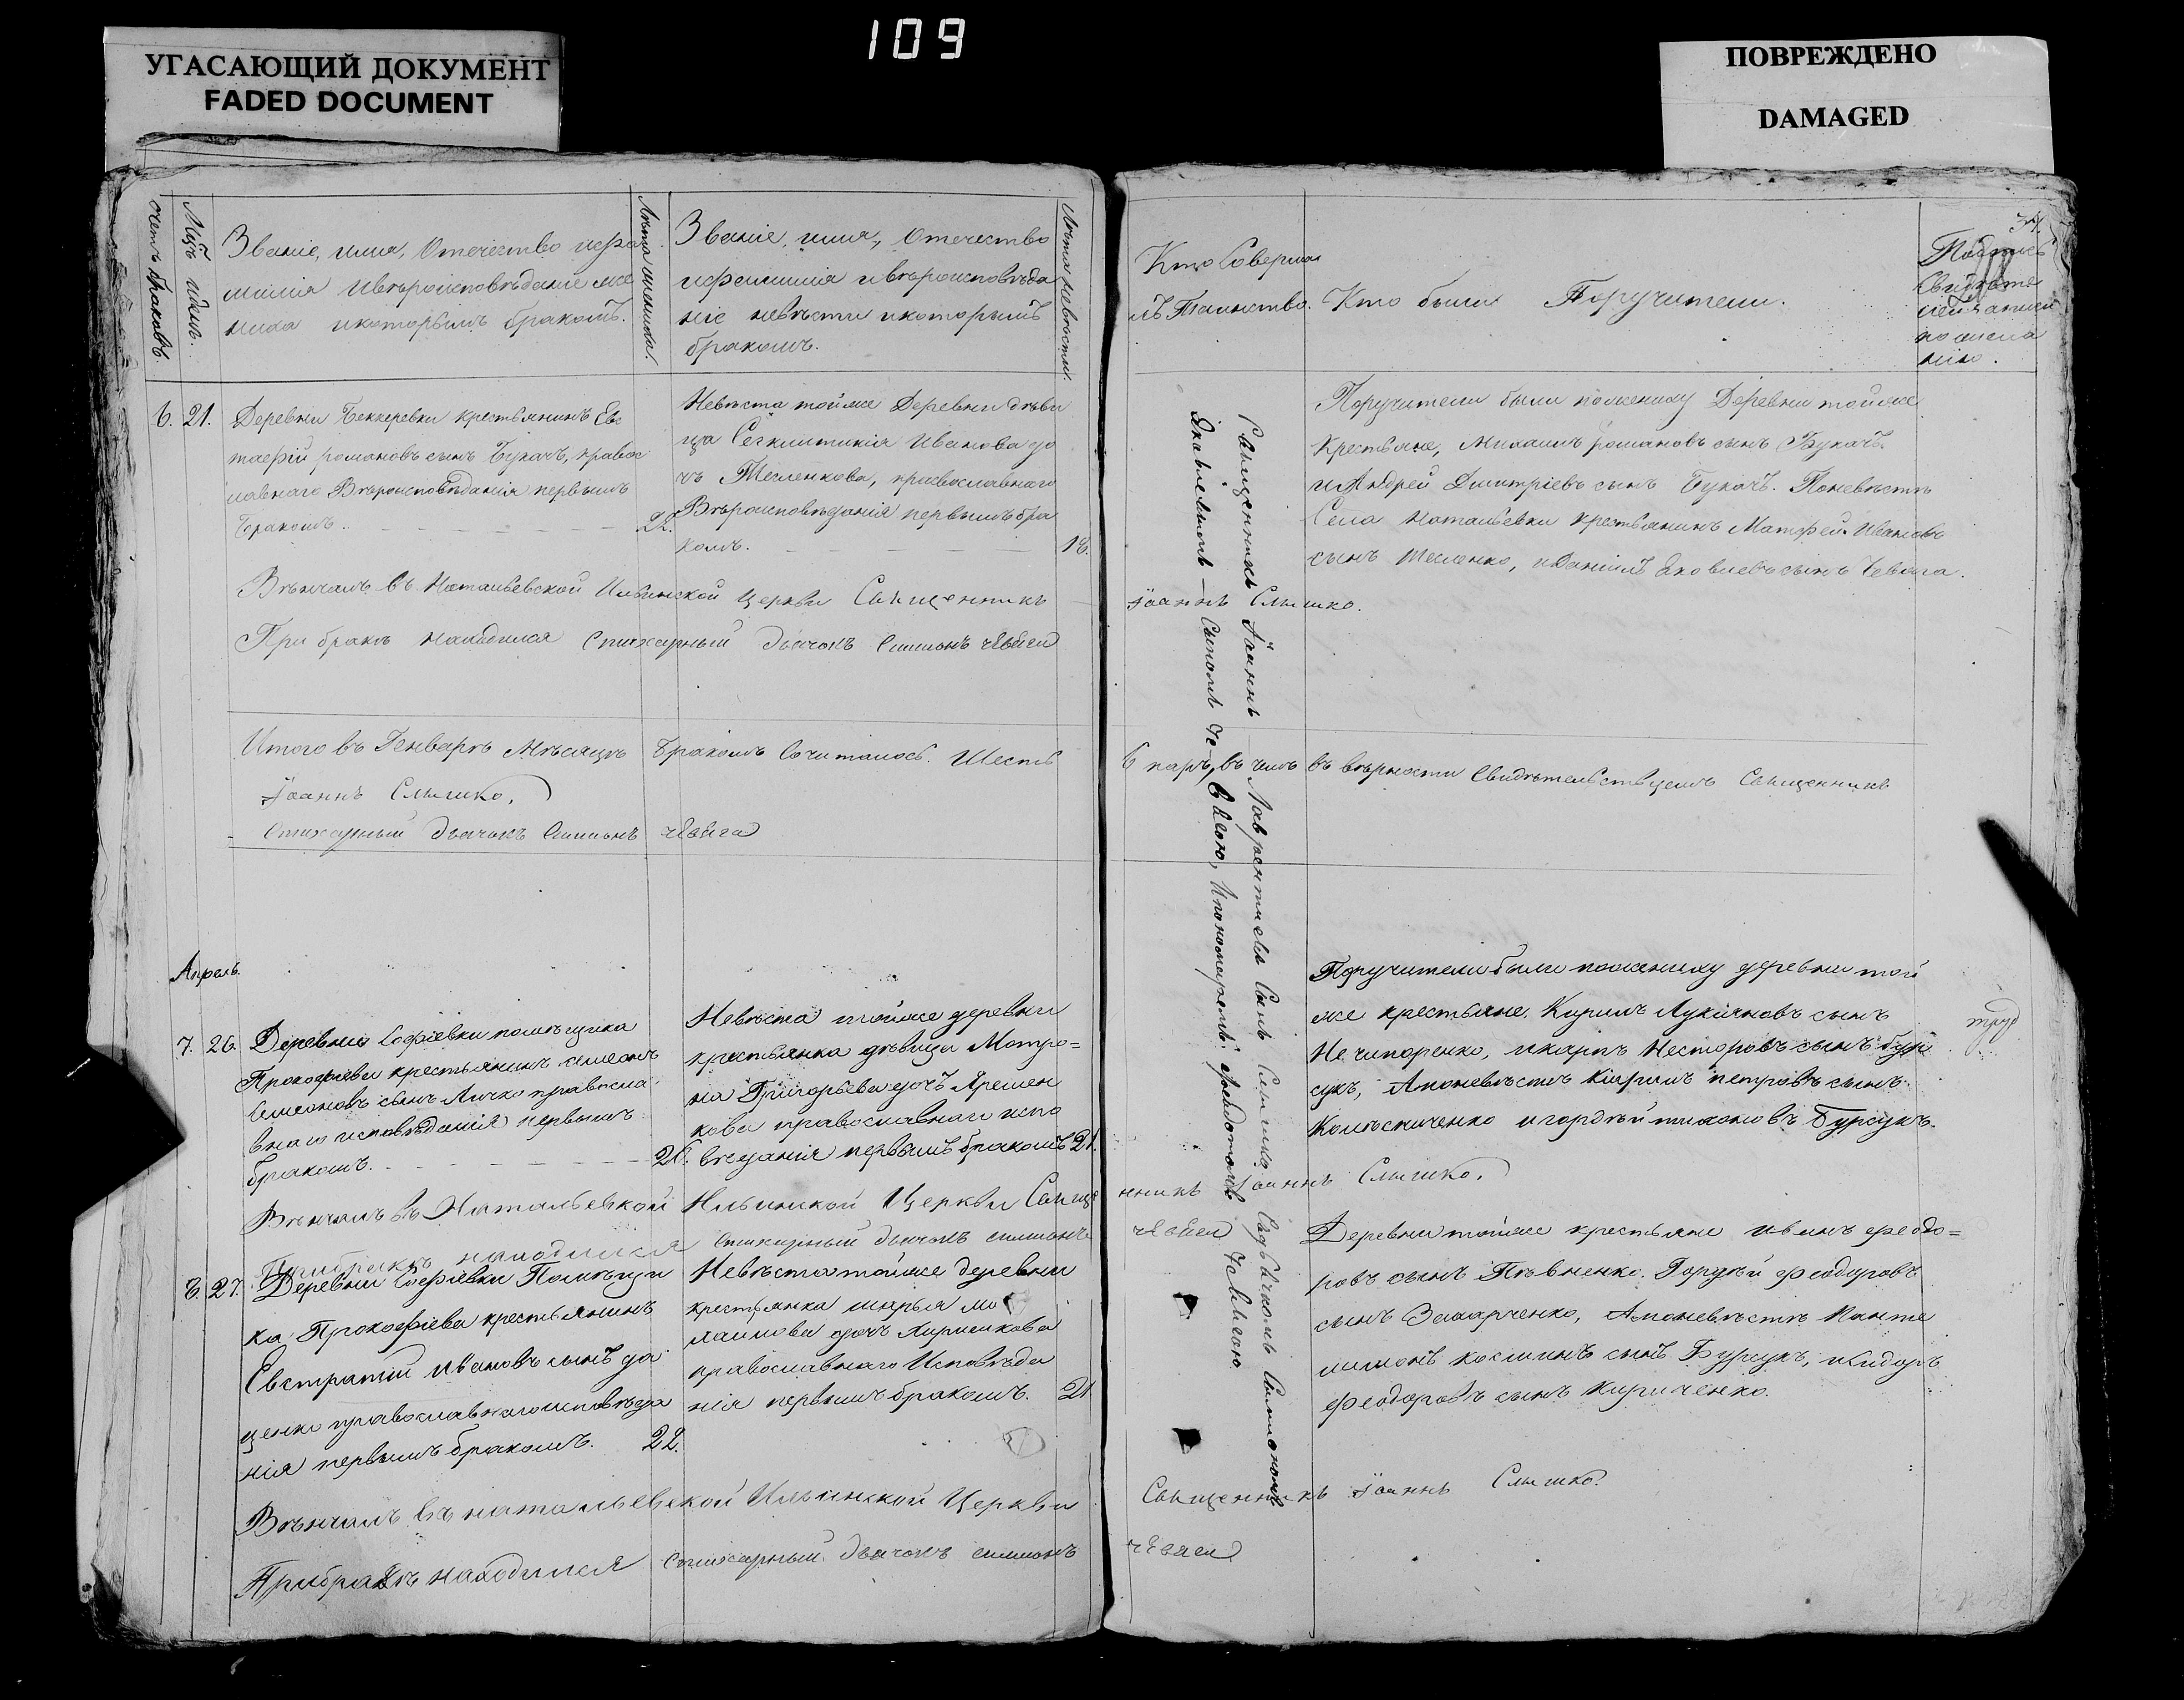 109
УГАСАЮЩИЙ ДОКУМЕНТ
FADED DOCUMENT
ПОВРЕЖДЕНО
DAMAGED
счетъ браковъ.
Мцъ и день.
Званіе, имя, Отечество и фа
милія и вѣроисповѣданіе же
ниха и которымъ бракомъ.
Лѣта жениха.
Званіе, имя, Отечество
и фамилія и вѣроисповѣда
ніе невѣсти и которымъ
бракомъ.
Лѣта невѣсты.
Кто Совершал
лъ Таинство.
Кто были Поручители.
Подпись
Свидѣте
лей
по жела
нію.
6. 21. Деревни Беккеревки крестьянинъ Евс
тафій романовъ сынъ Букачъ, правос
лавнаго Вѣроисповѣданія первымъ
бракомъ.
Невѣста тойже Деревни дѣви
ца Иванова до
чъ Тесленкова, православнаго
Вѣроисповѣданія первымъ бра
комъ. 18.
Поручители были по жениху Деревни тойже
Крестьяне, Михаилъ романовъ сынъ Букачъ.
и Андрей Димитріевъ сынъ Букачъ. По невѣстѣ
Села Натальевки крестьянинъ Матфей Ивановъ
сынъ Тесленко, и Даніилъ Яковлевъ сынъ Чевяга.
Вѣнчалъ въ Натальевской Ильинской Церкви Священникъ Іоаннъ Слышко.
При бракѣ находился Стихарный дьячокъ Симіонъ Чевяга
Итого въ Генварѣ Мѣсяцѣ бракомъ Сочиталось Шесть 6 паръ, въ чемъ въ вѣрности Свидѣтельствуемъ Священникъ
Іоаннъ Слышко.
Стихарный дьячокъ Симіонъ Чевяга
Апрель.
7. 26. Деревни Софіевки помѣщика
Прокофіева крестьянинъ симеонъ
Симеоновъ сынъ Личко правосла
внаго исповѣданія первымъ
бракомъ. 20.
Невѣста тойже деревни
крестьянка дѣвица Матро=
на Григорьева дочъ Яремен
кова православнаго испо
вѣданія первымъ бракомъ 21.
Поручители были по жениху деревни той
же крестьяне, Кирилъ Лукіановъ сынъ
Нечипоренко, и карпъ Несторовъ сынъ Бур
сукъ, А по невѣстѣ Кирилъ петровъ сынъ
Колѣсниченко и гордѣй тихоновъ Бурсукъ.
Вѣнчалъ въ Натальевской Ильинской Церкви Свяще нникъ Іоаннъ Слышко.
При бракѣ находился Стихарный дьячокъ симіонъ Чевяга
8. 27. Деревни Софіевки Помѣщи
ка Прокофіева крестьянинъ
Евстратій Ивановъ сынъ да
ценко православнаго исповѣда
нія первымъ бракомъ. 22.
Невѣста тойже деревни
крестьянка марья
дочъ Кириченкова
православнаго Исповѣда
нія первымъ бракомъ. 21
Деревни тойже крестьяне иванъ феодо=
ровъ сынъ Пѣвненко, Гордѣй Феодоровъ
сынъ А по невѣстѣ Панте
лимонъ космынъ сынъ Бурсукъ, и Сидоръ
Феодоровъ сынъ Кириченко.
Вѣнчалъ въ натальевской Ильинской Церкви Священникъ Іоаннъ Слышко.
При бракѣ находился Стихарный дьячокъ симіонъ Чевяга
Священникъ Іоаннъ Лаврентиевъ Сынъ Слышко,